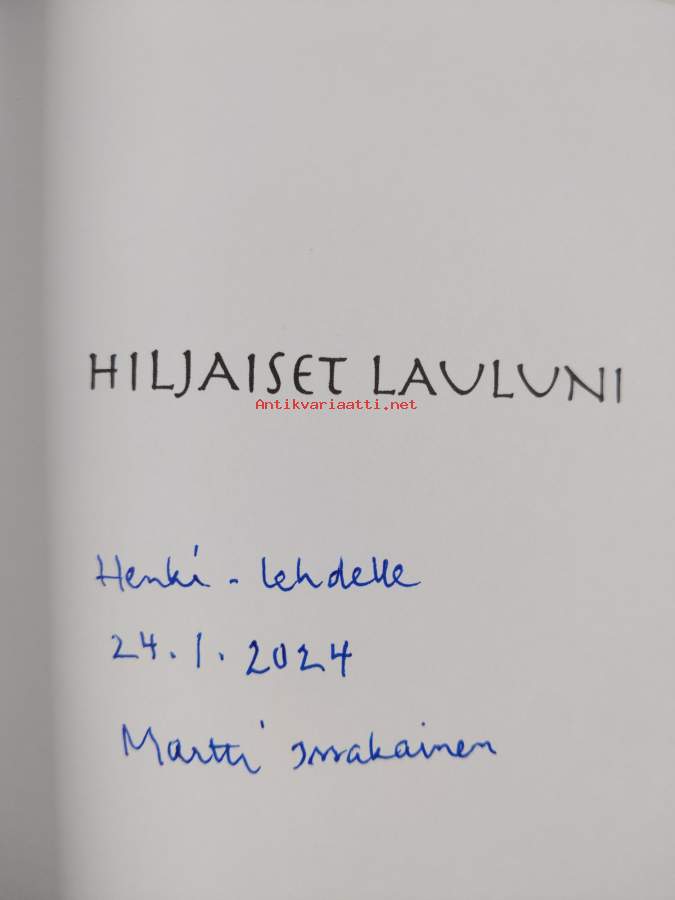 HILJAISET LAULUNI
Antikvariaatti.net
Henki - lehdelle
24.1.2024
Martti Issakainen